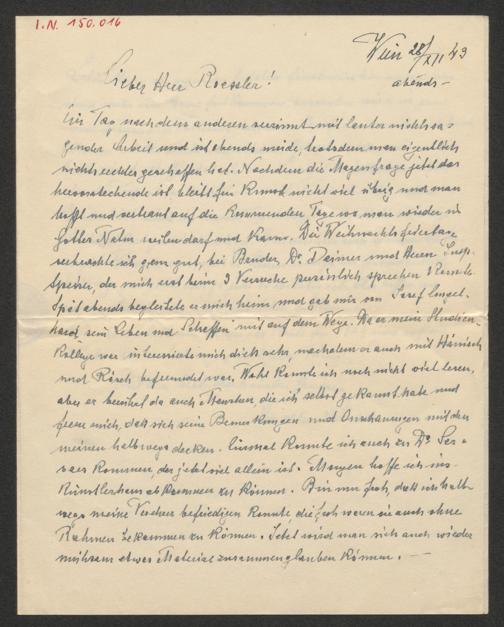 I.N. 150.016
Wien 28/XII 43
abends –
Lieber Herr Roessler!
Ein Tag nach dem anderen verrinnt mit lauter nichtssa-
gender Arbeit und ist abends müde, trotzdem man eigentlich
nichts rechtes geschaffen hat. Nachdem die Magenfrage jetzt das
hervorstechende ist bleibt für Kunst nicht viel übrig und man
hofft und vertraut auf die kommenden Tage wo man wieder in
Gottes Natur weilen darf und kann. Die Weihnachtsfeiertage
verbrachte ich ganz gut, bei Bruder, Dr. Deimer und Herrn
der mich erst beim 3 Versuche persönlich sprechen konnte
Spät abends begleitete er mich heim und gab mir von Josef Engel-
hardt sein Leben und Schaffen mit auf den Weg. Da er mein Studien-
kollege war interessiert mich dies sehr, nachdem er auch mit Hänisch
und Rösch befreundet war. Wohl konnte ich noch nicht viel lesen,
aber er beruft da auch Menschen die ich selbst gekannt habe und
freue mich, daß sich seine Bemerkungen und Anschauungen mit den
meinen halbwegs decken. Einmal konnte ich auch zu Dr. Ser-
vaes kommen, der jetzt viel allein ist. Morgen hoffe ich ins
Künstlerhaus abkommen zu können. Bin nur froh, daß ich halb-
wegs meine befriedigen konnte, die froh waren sie auch ohne
Rahmen bekommen zu können. Jetzt wird man sich auch wieder
mühsam etwas Material zusammenglauben können. —